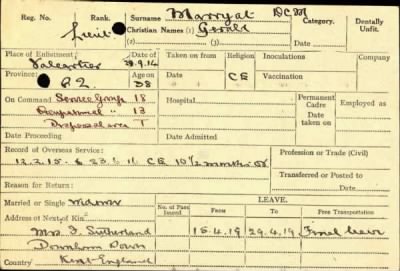 Reg. No. Rank. Surname Marryat DCM Category. Dentally Unfit.
Lieut Christian Names (1) Gerald
(2) (3)
Place of Enlistment Date Taken on from Religion Inoculations Company
Valcartier 23.9.14
Province: Age on Date CE Vaccination
P.Q. 38
On Command Service Group 18 Hospital Permanent Cadre Date taken on Employed as
Occupational " 13
Dispersal area T
Date Proceeding Date Admitted
Record of Overseas Service: Profession or Trade (Civil)
12.2.15 CE 10½ months
Transferred or Posted to
Reason for Return: Date
Married or Single LEAVE.
Address of Next of Kin No. of Pass Issued From To Free Transportation
Mrs. F. Sutherland 15.4.19 29.4.19 Final leave
Down
Country Kent England